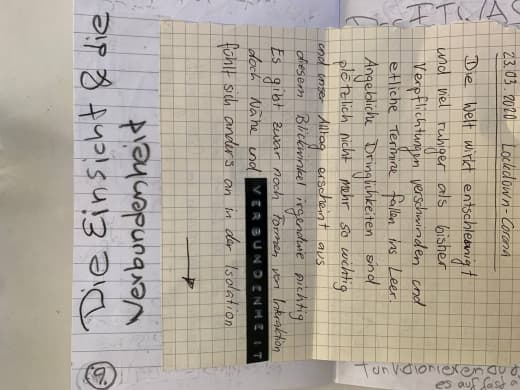 23.03.2020 Lockdown-Corona
Die Welt wirkt entschleunigt
und viel ruhiger als bisher
Verpflichtungen verschwinden und
etliche Termine fallen ins Leer.
Angebliche Dringlichkeiten sind
plötzlich nicht mehr so wichtig
und unser Alltag erscheint aus
diesem Blickwinkel irgendwie nichtig
Es gibt zwar noch Formen von Interaktion
doch Nähe und VERBUNDENHEIT
fühlt sich anders an in der Isolation
→
Die Einsicht & die
Verbundenheit
es auf